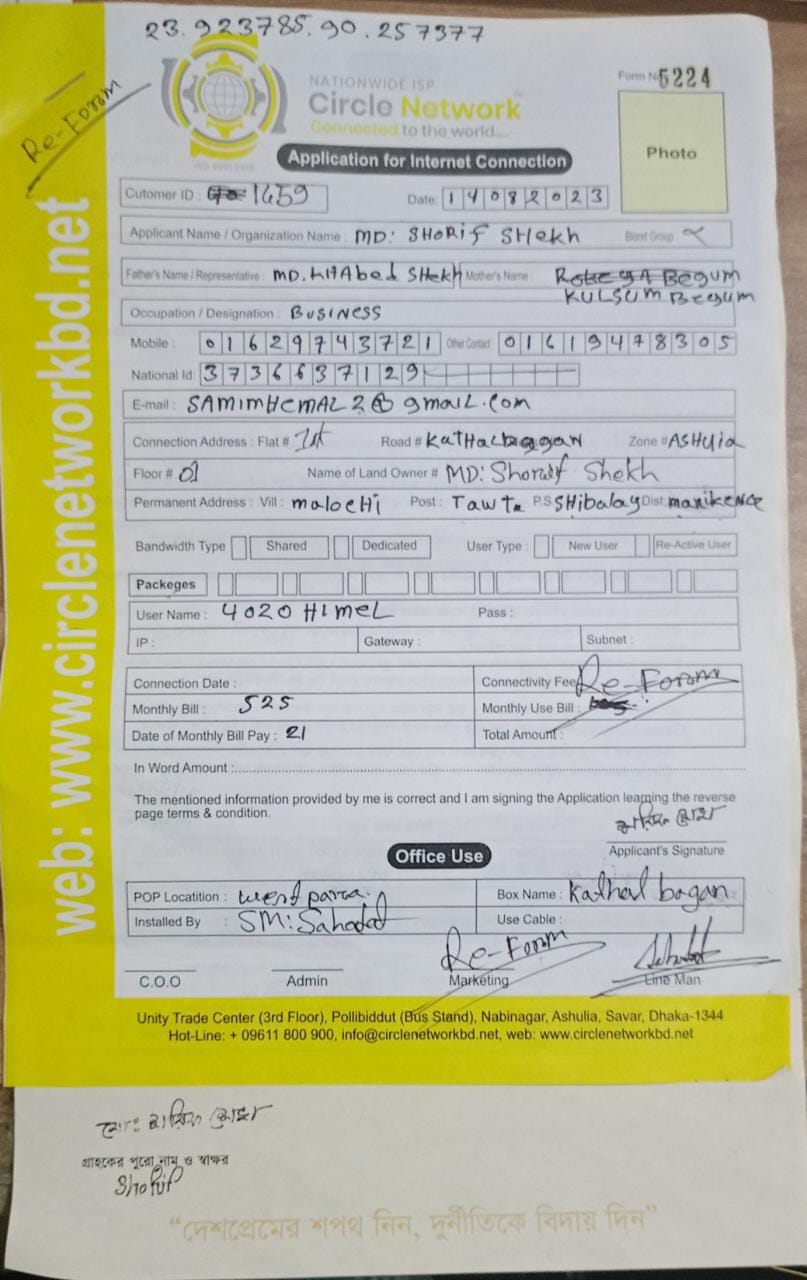 23.923785.90.257377
Re-Foram
NATIONWIDE ISP
Form No 5224
Circle Network
Connected to the world....
Photo
Application for Internet Connection
Cutomer ID : 1659 Date: 14082023
Applicant Name / Organization Name : MD: SHORif SHekh Blood Group
Father's Name / Representative : MD. KHAbed SHekh Mother's Name : Rokeya Begum
KULSUM Begum
Occupation / Designation : BUSINESS
Mobile : 01629743721 Other Contact 01619478305
National Id: 3736637129
E-mail : SAMIMHEMAL2@gmail.com
Connection Address : Flat # 1st Road # KatHalbagan Zone # ASHulia
Floor # 01 Name of Land Owner # MD: Shoraif Shekh
Permanent Address : Vill : malocHi Post : Tawta P.S SHibalay Dist: manikence
Bandwidth Type Shared Dedicated User Type : New User Re-Active User
Packeges
User Name : 4020 HImeL Pass :
IP : Gateway : Subnet :
Connection Date : Connectivity Fee Re-Foram
Monthly Bill : 525 Monthly Use Bill :
Date of Monthly Bill Pay : 21 Total Amount :
In Word Amount :
The mentioned information provided by me is correct and I am signing the Application learning the reverse
page terms & condition.
Applicant's Signature
Office Use
POP Locatition : west parra. Box Name : Kathal bagan
Installed By : SM: Sahadat Use Cable :
Re-Foram
C.O.O Admin Marketing Line Man
Unity Trade Center (3rd Floor), Pollibiddut (Bus Stand), Nabinagar, Ashulia, Savar, Dhaka-1344
Hot-Line: + 09611 800 900, info@circlenetworkbd.net, web: www.circlenetworkbd.net
web: www.circlenetworkbd.net
গ্রাহকের পুরো নাম ও স্বাক্ষর
"দেশপ্রেমের শপথ নিন, দুর্নীতিকে বিদায় দিন"